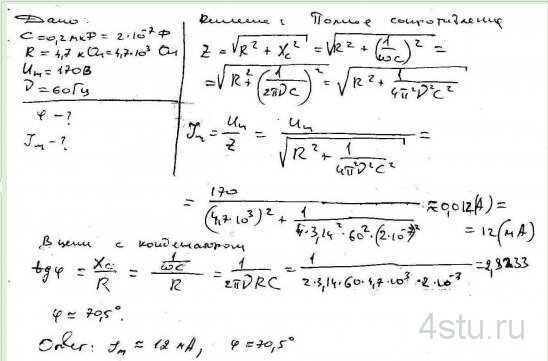 Дано:
C = 0,2 мкФ = 2·10⁻⁷ Ф
R = 4,7 кОм = 4,7·10³ Ом
Uₘ = 170 В
ν = 60 Гц
φ – ?
Jₘ – ?
Решение: Полное сопротивление
Z = √(R² + Xc²) = √(R² + (1/ωC)²) =
= √(R² + (1/2πνC)²) = √(R² + 1/4π²ν²C²)
Jₘ = Uₘ/Z = Uₘ/√(R² + 1/4π²ν²C²) =
= 170/(4,7·10³)² + 1/4·3,14²·60²·(2·10⁻⁷)² ≈ 0,012 (А) =
= 12 (мА)
В цепи с конденсатором
tgφ = Xc/R = (1/ωC)/R = 1/2πνRC = 1/2·3,14·60·4,7·10³·2·10⁻³ = 2,8233
φ ≈ 70,5°.
Ответ: Jₘ ≈ 12 мА, φ ≈ 70,5°
4stu.ru